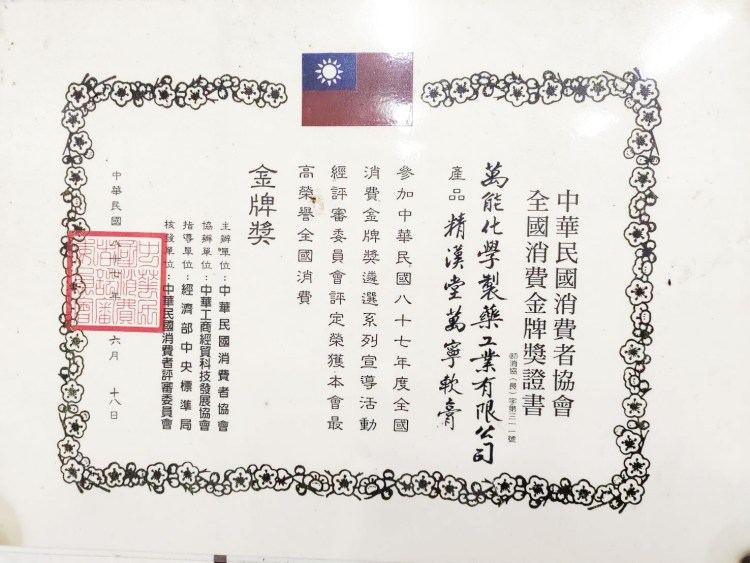 中華民國消費者協會
全國消費金牌獎證書
㊣消協(長)字第三一一號
萬能化學製藥工業有限公司
產品 精漢堂萬寧軟膏
參加中華民國八十七年度全國
消費金牌獎遴選系列宣導活動
經評審委員會評定榮獲本會最
高榮譽全國消費
金牌獎
主辦單位：中華民國消費者協會
協辦單位：中華工商經貿科技發展協會
指導單位：經濟部中央標準局
核發單位：中華民國消費者評審委員會
中華民國 八十七年 六月 十八日